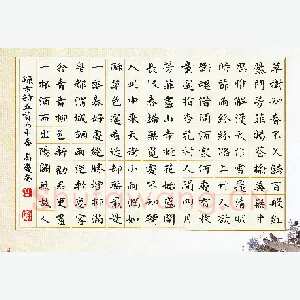 草樹知春不久歸百般紅
紫鬥芳菲楊花榆莢無才
思惟解漫天作雪飛清明
時節雨紛紛路上行人欲
斷魂借問酒家何處有牧
童遙指杏花村人間四月
芳菲盡山寺桃花始盛開
長恨春歸無覓處不知轉
入此中來天街小雨潤如
酥草色遙看近却無最是
一年春好處絕勝煙柳滿
皇都渭城朝雨浥輕塵客
舍青青柳色新勸君更盡
一杯酒西出陽關無故人
錄古詩五首 年春